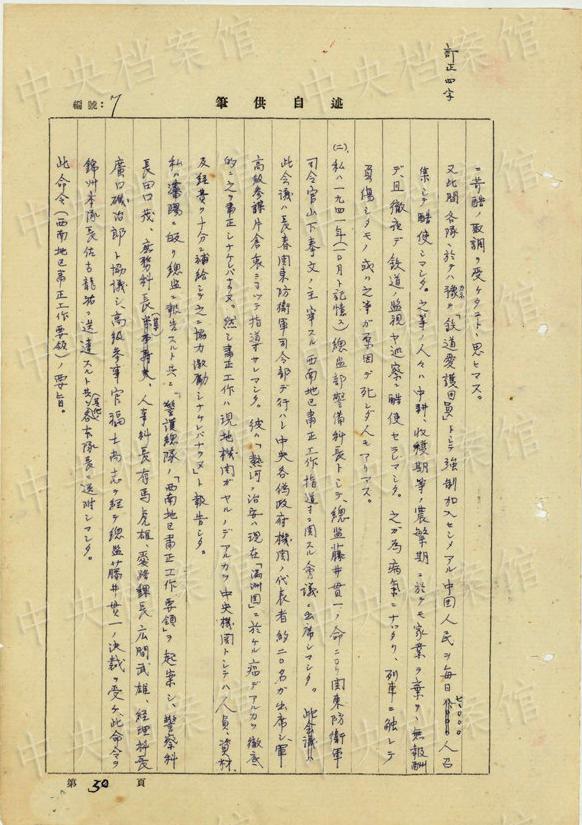 訂正四字
編號:7
述自供筆
ニ苛酷ノ取調ヲ受ケタコトト思ヒマス。
又此間各隊ニ於テハ豫テ「鉄道愛護団員」トシテ強制加入セシメアル中国人民ヲ毎日 七〇〇〇〇 人召
集シテ酷使シマシタ。之等ノ人々ハ中耕、收穫期等ノ農繁期ニ於テモ家業ヲ棄テ、無報酬
デ、且徹夜デ鉄道ノ監視ヤ巡察ニ酷使セラレマシタ。之ガ為病気ニナツタリ、列車ニ触レテ
負傷シタモノ或ハ之等ガ原因デ死ンダ人モアリマス。
(二)、私ハ一九四一年(一〇月ト記憶ス)總監部警備科長トシテ、總監藤井貫一ノ命ニヨリ関東防衛軍
司令官山下奉文ノ主宰スル西南地区粛正工作指道ニ関スル會議ニ出席シマシタ。此會議ハ
此会议ハ長春関東防衛軍司令部デ行ハレ中央各偽政府機関ノ代表者約二〇名ガ出席シ、軍
高級参謀片倉衷ニヨツテ指道サレマシタ。彼ハ「熱河ノ治安ハ現在「満洲国」ニ於ケル癌デアルカラ徹底
的ニ之ヲ粛正シナケレバナラヌ。然シ粛正工作ハ現地機関ガヤルノデアルカラ中央機関トシテハ人員、資材
及経費ヲ十分ニ補給シテ之ニ協力激励シナケレバナラヌ」ト報告シタ。
私ハ瀋陽ニ皈リ總監ニ報告スルト共ニ「警護總隊ノ西南地区粛正工作要領」ヲ起案シ、警察科
長田口茂、庶務科長 人事科長有馬虎雄、愛路課長広間武雄、経理科長
廣口磯治郎ト協議シ、高級参事官福士尚志ヲ経テ總監藤井貫一ノ決裁ヲ受ケ、此命令ヲ
錦州本隊長佐古龍祐ニ送達スルト共ニ 各本隊長ニ送附シマシタ。
此命令(西南地区粛正工作要領)ノ要旨。
第 50 頁
中央档案馆